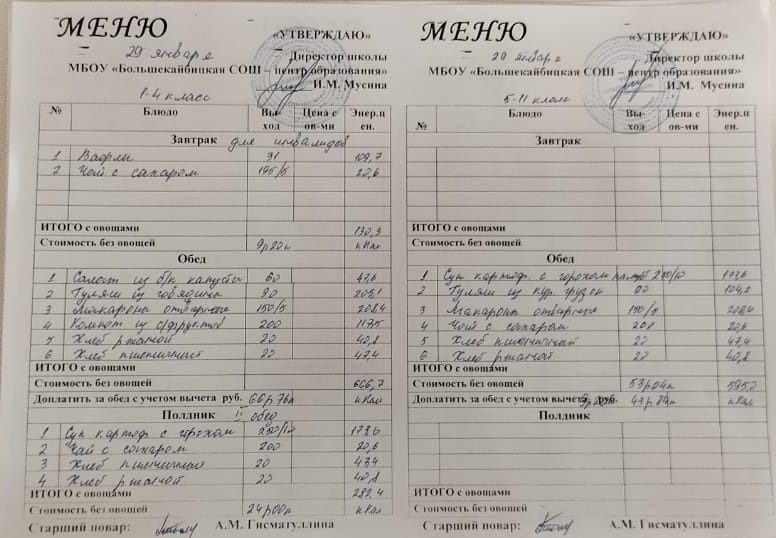 МЕНЮ
«УТВЕРЖДАЮ»
29 января
Директор школы
МБОУ «Большекайбицкая СОШ – центр образования»
И.М. Мусина
1-4 класс
№ Блюдо Вы-ход Цена с ов-ми Энер.ц ен.
Завтрак для инвалидов
1 Вафли 31 109,7
2 Чай с сахаром 195/5 20,6
ИТОГО с овощами 130,3
Стоимость без овощей 9р20к кКал
Обед
1 Салат из б/к капусты 60 47,6
2 Гуляш из говядины 90 205,1
3 Макароны отварные 150/5 208,4
4 Компот из с/фруктов 200 117,5
5 Хлеб ржаной 20 40,8
6 Хлеб пшеничный 20 47,4
ИТОГО с овощами
Стоимость без овощей 666,7
Доплатить за обед с учетом вычета руб. 66р76к кКал
Полдник II обед
1 Суп картоф. с горохом 250/10 173,6
2 Чай с сахаром 200 20,6
3 Хлеб пшеничный 20 47,4
4 Хлеб ржаной 20 40,8
ИТОГО с овощами 282,4
Стоимость без овощей 24р00к кКал
Старший повар: А.М. Гисматуллина
МЕНЮ
«УТВЕРЖДАЮ»
29 января
Директор школы
МБОУ «Большекайбицкая СОШ – центр образования»
И.М. Мусина
5-11 класс
№ Блюдо Вы-ход Цена с ов-ми Энер.ц ен.
Завтрак
ИТОГО с овощами
Стоимость без овощей
Обед
1 Суп картоф. с горохом 250/10 173,6
2 Гуляш из кур. грудок 90 104,2
3 Макароны отварные 150/5 208,4
4 Чай с сахаром 200 20,6
5 Хлеб пшеничный 20 47,4
6 Хлеб ржаной 20 40,8
ИТОГО с овощами
Стоимость без овощей 53р04к 595,0
Доплатить за обед с учетом вычета руб. 43р84к кКал
Полдник
ИТОГО с овощами
Стоимость без овощей
Старший повар: А.М. Гисматуллина